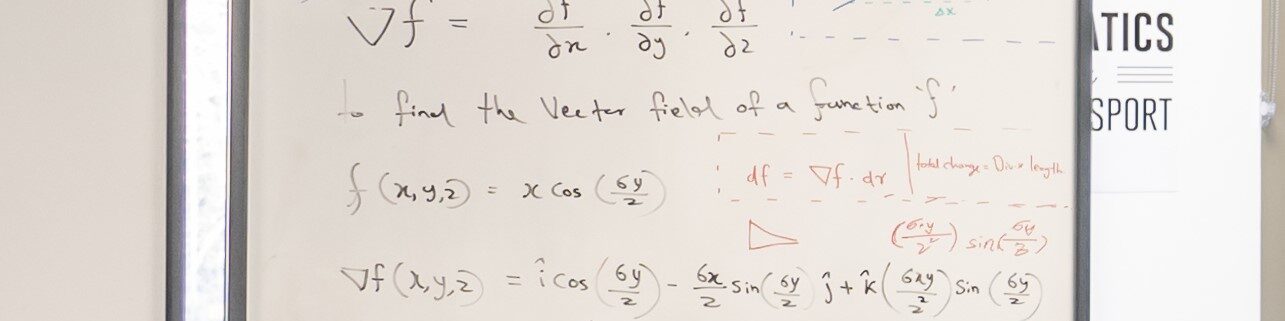 ∇f = ∂f/∂x . ∂f/∂y . ∂f/∂z
Δx
to find the Vector field of a function 'f'
f(x,y,z) = x cos (6y/z)
df = ∇f · dr | total change = Div x length
(6xy/z²) sin(6y/z)
∇f(x,y,z) = î cos(6y/z) - 6x/z sin(6y/z) ĵ + k̂ (6xy/z²) sin (6y/z)
ATICS
SPORT